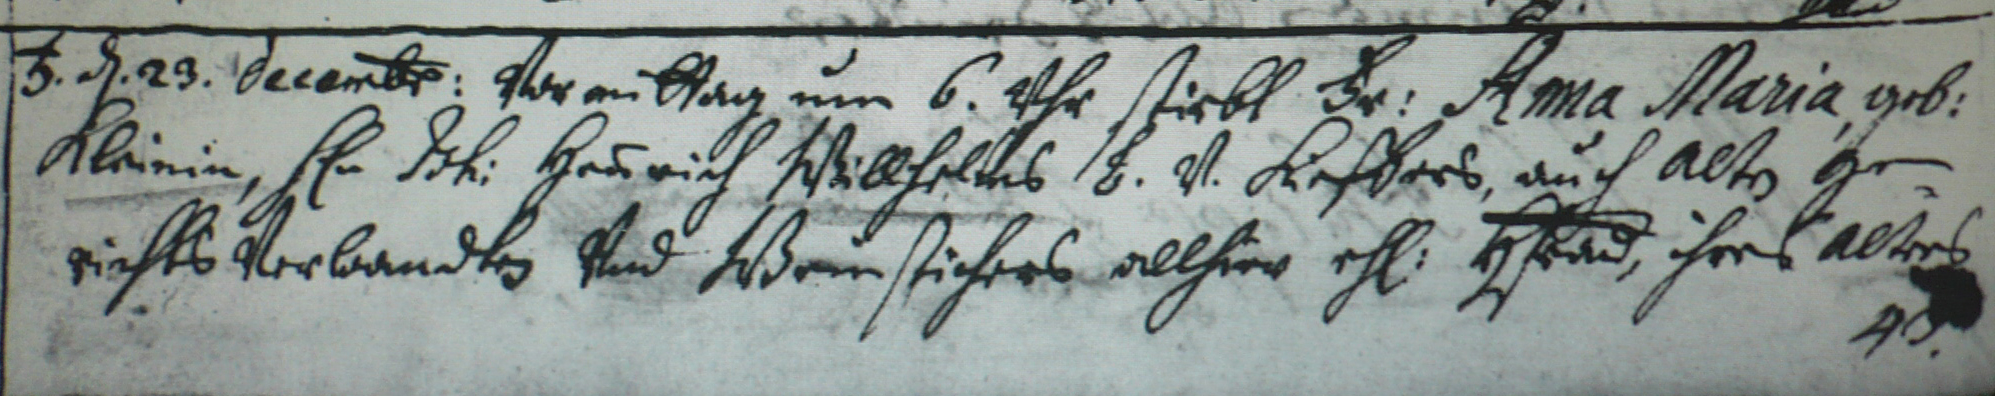 d. 23. decembr: Vormittag um 6. Uhr stirbt Fr: Anna Maria, geb:
Kleinin, Hn Joh: Henrich Willhelms B. V. Kiefers, auch alten Ge-
richts Verwandten Und Weinstichers allhier ehl: Hfrau, ihres alters